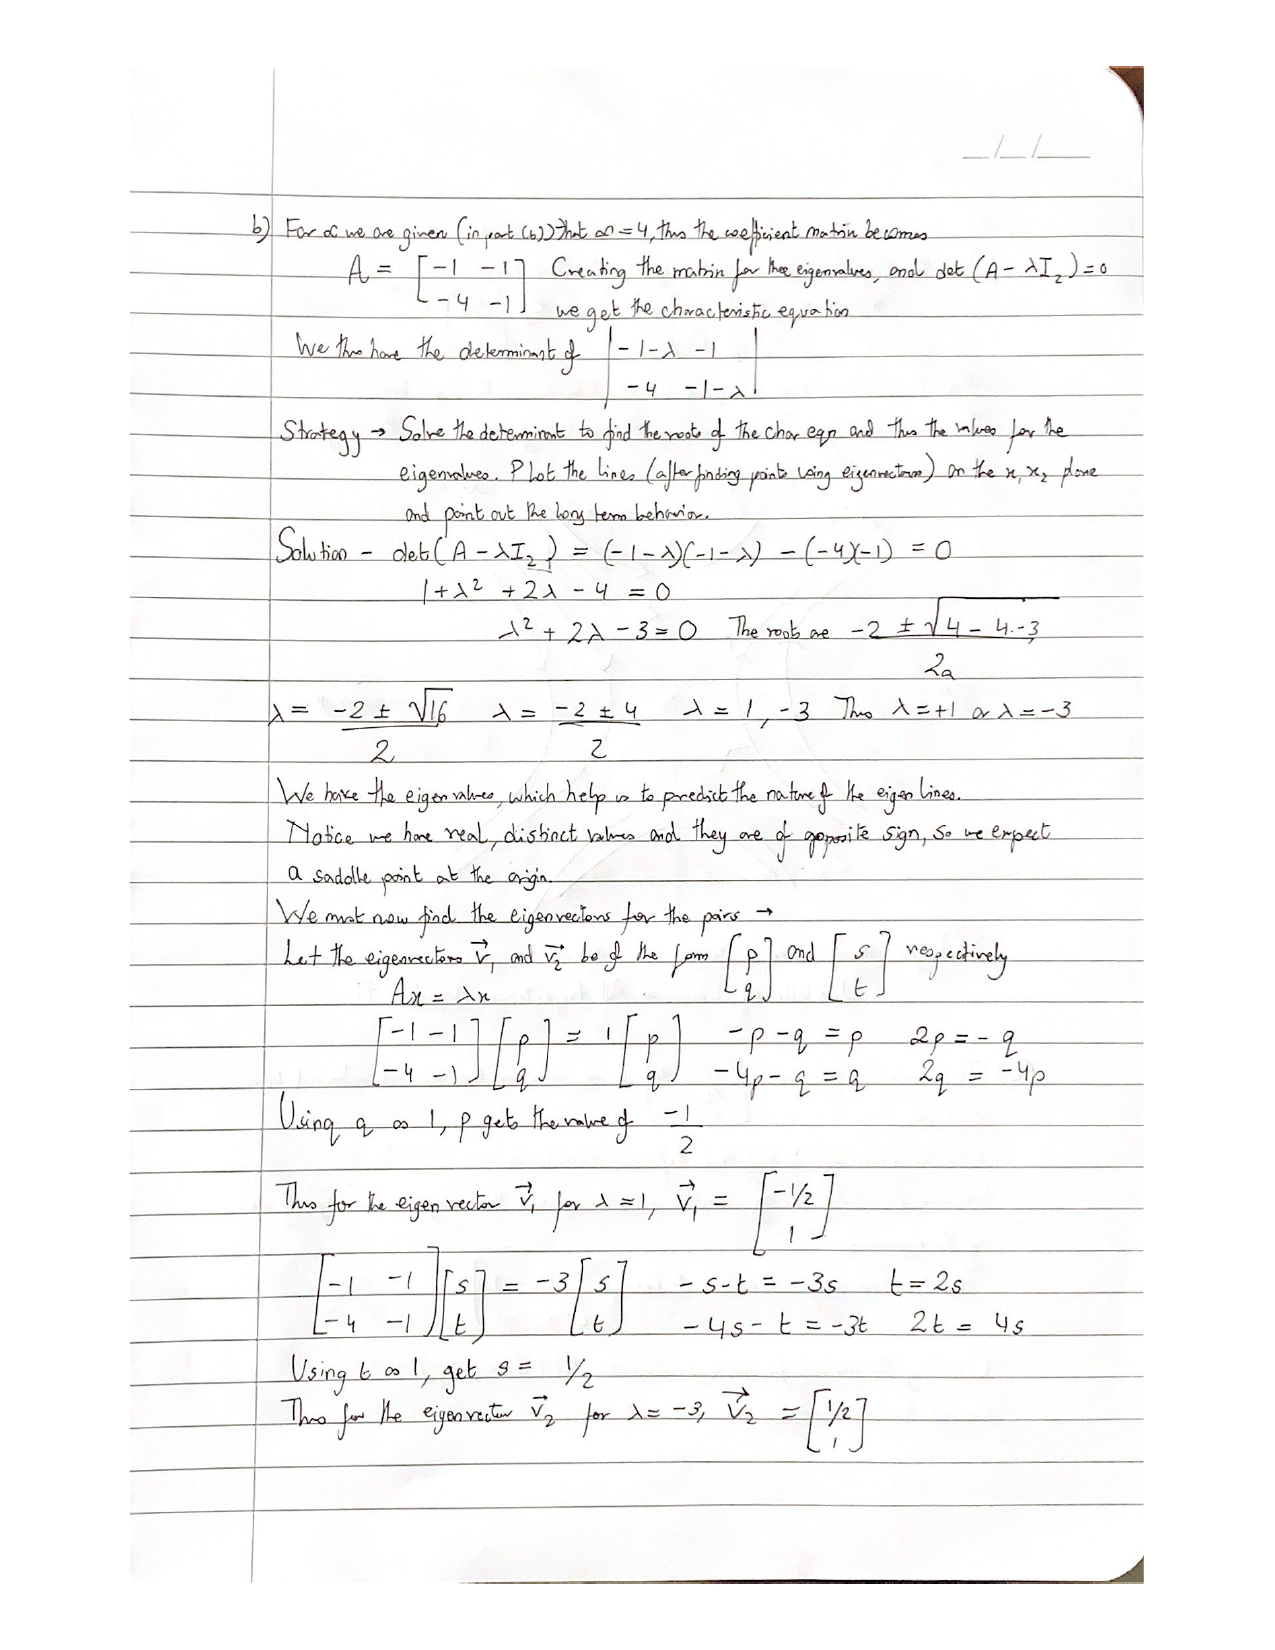 _/_/_
b) For α we are given (in part (b)) that α = 4, thus the coefficient matrix becomes
A = [-1 -1; -4 -1] Creating the matrix for thee eigenvalues, and det (A - λI₂) = 0
we get the characteristic equation
We thus have the determinant of |-1-λ -1; -4 -1-λ|
Strategy → Solve the determinant to find the roots of the char eqn and thus the values for the
eigenvalues. Plot the lines (after finding points using eigenvectors) on the x₁ x₂ plane
and point out the long term behavior.
Solution - det(A - λI₂) = (-1-λ)(-1-λ) - (-4)(-1) = 0
1 + λ² + 2λ - 4 = 0
λ² + 2λ - 3 = 0 The roots are (-2 ± √(4 - 4.-3))/2a
λ = (-2 ± √16)/2 λ = (-2 ± 4)/2 λ = 1, -3 Thus λ = +1 or λ = -3
We have the eigenvalues, which help us to predict the nature of the eigen lines.
Notice we have real, distinct values and they are of opposite sign, so we expect
a saddle point at the origin.
We must now find the eigenvectors for the pairs →
Let the eigenvectors v⃗₁ and v⃗₂ be of the form [p; q] and [s; t] respectively
Ax = λx
[-1 -1; -4 -1] [p; q] = 1 [p; q] -p - q = p 2p = -q
-4p - q = q 2q = -4p
Using q as 1, p gets the value of -1/2
Thus for the eigen vector v⃗₁ for λ = 1, v⃗₁ = [-1/2; 1]
[-1 -1; -4 -1] [s; t] = -3 [s; t] -s - t = -3s t = 2s
-4s - t = -3t 2t = 4s
Using t as 1, get s = 1/2
Thus for the eigenvector v⃗₂ for λ = -3, v⃗₂ = [1/2; 1]